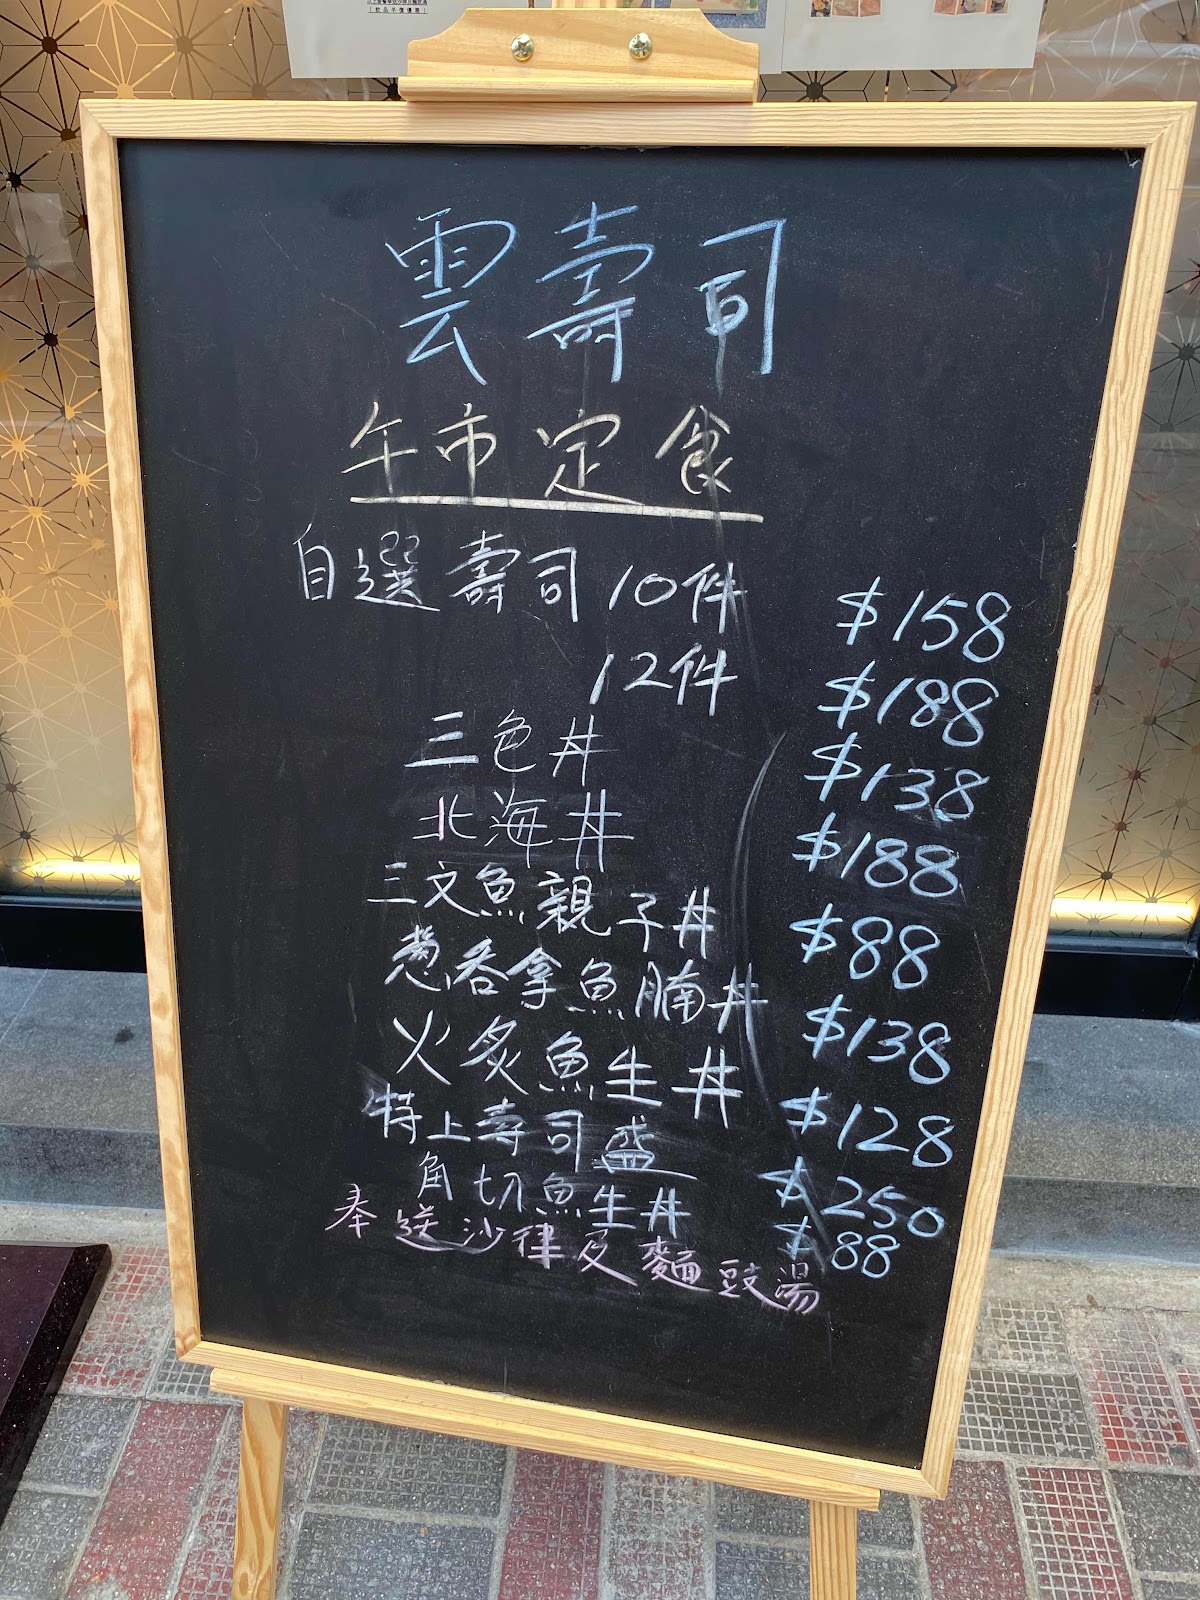 以上套餐奉送沙律及麵豉湯
(飲品半價優惠)
雲壽司
午市定食
自選壽司10件 $158
12件 $188
三色丼 $138
北海丼 $188
三文魚親子丼 $88
葱吞拿魚腩丼 $138
火炙魚生丼 $128
特上寿司盛 $250
角切魚生丼 $88
奉送沙律及麵豉湯